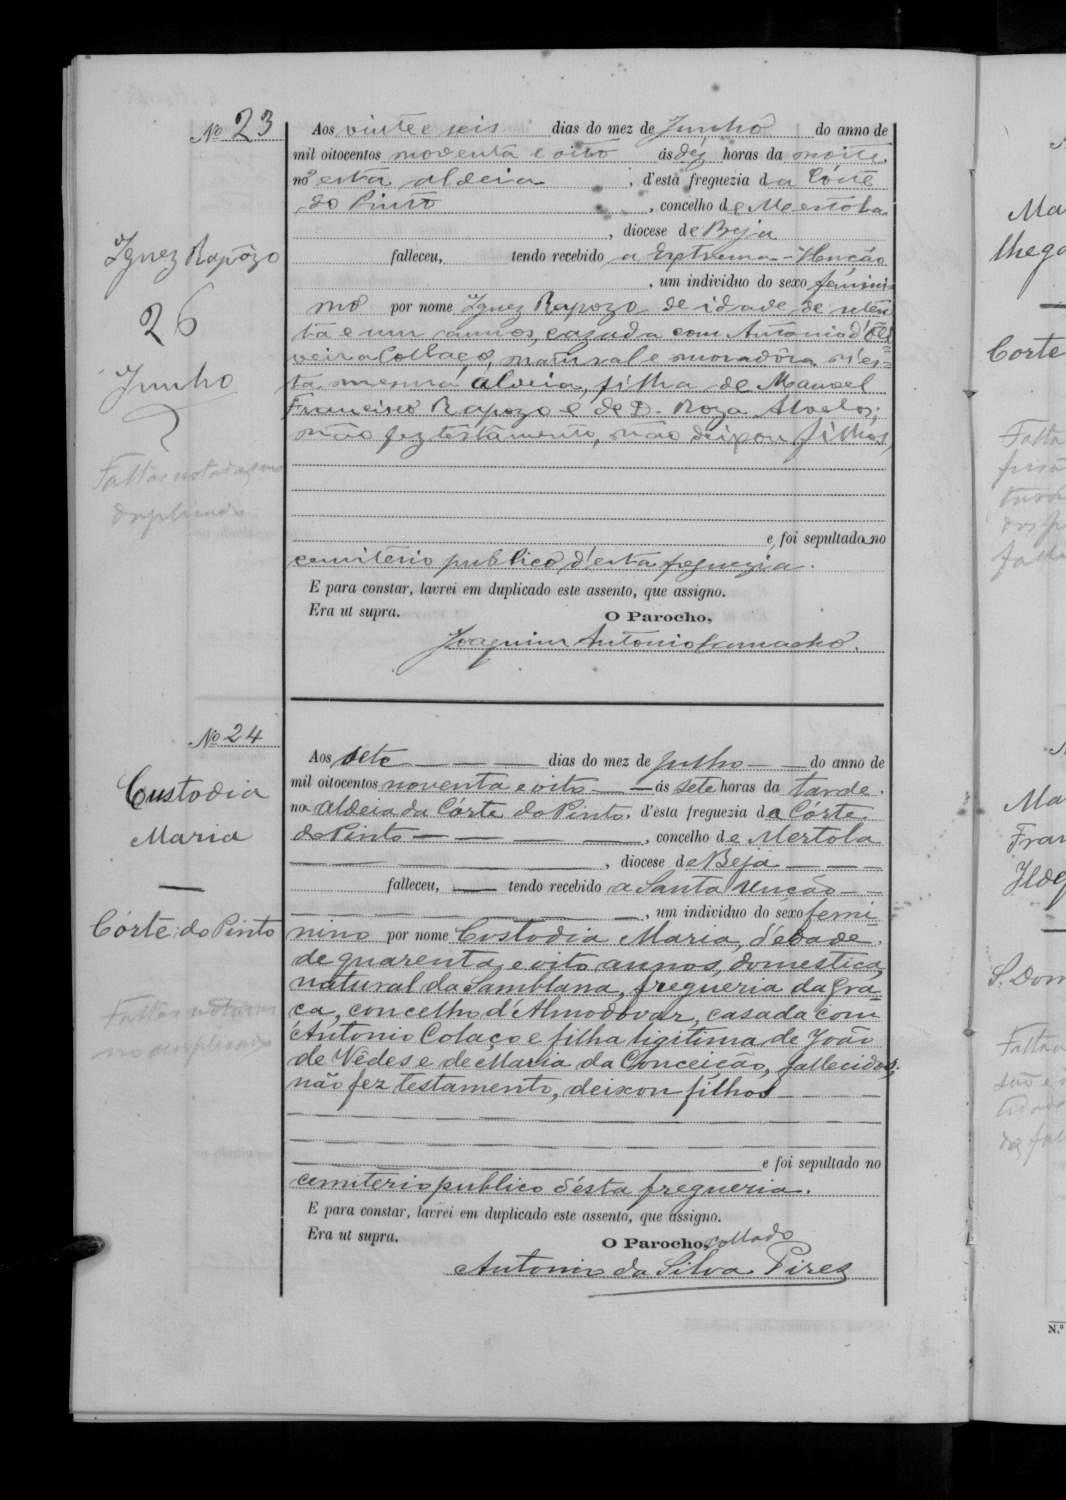 Nº 23
Aos vinte e seis dias do mez de Junho do anno de
mil oitocentos noventa e oito ás dez horas da noite
n'esta aldeia, d'esta freguezia da Côrte
do Pinto, concelho de Mertola
, diocese de Beja
falleceu, tendo recebido a Extrema-Uncção
, um individuo do sexo femini-
no por nome Ignez Rapozo de idade de seten
ta e um annos, cazada com Antonio d'Oli
veira Collaço, natural e moradôra n'es-
ta mesma aldeia, filha de Manoel
Francisco Rapozo e de D. Roza
não fez testamento, não deixou filhos,
e foi sepultado no
cemiterio publico d'esta freguezia.
E para constar, lavrei em duplicado este assento, que assigno.
Era ut supra.
O Parocho,
Joaquim Antonio Camacho.
Ignez Rapôzo
26
Junho
Faltas notadas no
duplicado
Nº 24
Aos sete dias do mez de Julho do anno de
mil oitocentos noventa e oito ás sete horas da tarde.
na aldeia da Côrte do Pinto, d'esta freguezia da Côrte
do Pinto, concelho de Mertola
, diocese de Beja
falleceu, tendo recebido a Santa Uncão
, um individuo do sexo femi
nino por nome Custodia Maria, d'edade
de quarenta e oito annos, domestica,
natural da Samblana, fregueria da Gra-
ça, concelho d'Almodovar, casada com
Antonio Colaço e filha ligitima de João
de Vêdes e de Maria da Conceição, fallecidos;
não fez testamento, deixou filhos
e foi sepultado no
cemiterio publico d'ésta fregueria.
E para constar, lavrei em duplicado este assento, que assigno.
Era ut supra.
O Parocho, collado
Antonio da Silva Pires
Custodia
Maria
Côrte do Pinto
Faltas notadas
no duplicado
Ma
lhega
Corte
Falta
Ma
Fran
S. Dom
Falta
N.º